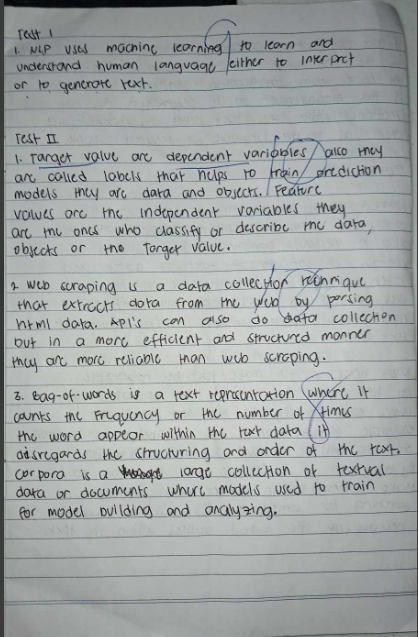 Test I
1. NLP uses machine learning to learn and
understand human language either to interpret
or to generate text.
Test II
1. Target value are dependent variables also they
are called labels that helps to train prediction
models they are data and objects. Feature
values are the independent variables they
are the ones who classify or describe the data,
objects or the Target value.
2. Web scraping is a data collection technique
that extracts data from the web by parsing
html data. API's can also do data collection
but in a more efficient and structured manner
they are more reliable than web scraping.
3. Bag-of-words is a text representation where it
counts the frequency or the number of times
the word appear within the text data it
disregards the structuring and order of the text.
Corpora is a large collection of textual
data or documents where models used to train
for model building and analyzing.